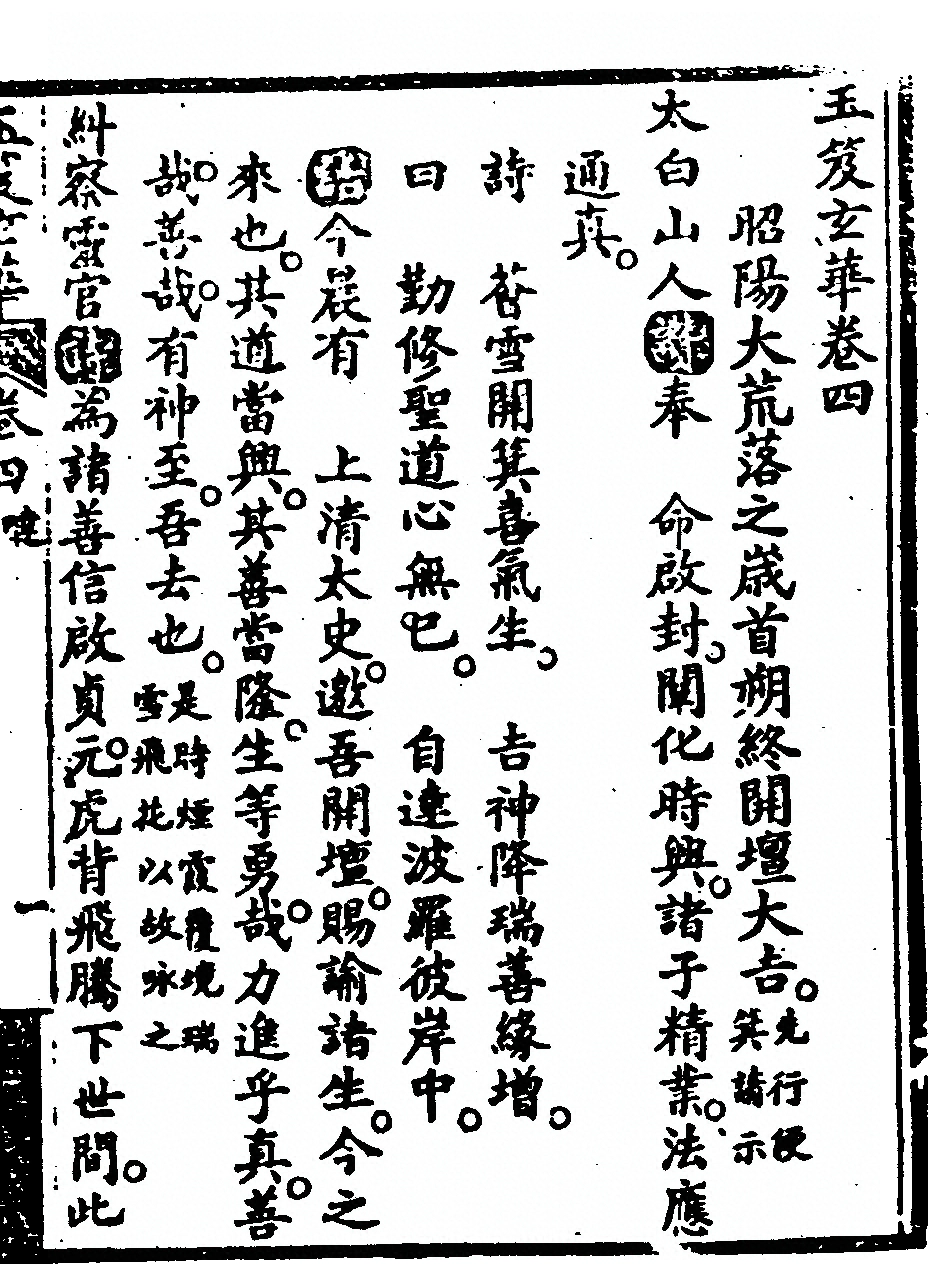 玉笈玄華卷四
昭陽大荒落之歲首朔終開壇大吉。先行便箕請示
太白山人奉 命啟封。闡化時興。諸子精業。法應
通真。
詩 苔雪開箕喜氣生。 吉神降瑞善緣增。
曰 勤修聖道心無已。 自達波羅彼岸中。
今晨有 上清太史。邀吾開壇。賜諭諸生。今之
來也。其道當興。其善當隆。生等勇哉。力進乎真。善
哉。善哉。有神至。吾去也。是時煙霞覆境瑞雪飛花以故咏之
糾察靈官為諸善信啟貞元。虎背飛騰下世間。此
卷四 一